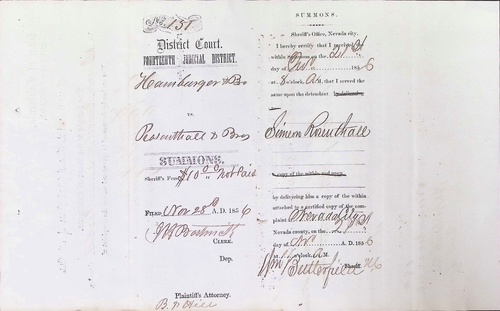 No. 151
District Court.
FOURTEENTH JUDICIAL DISTRICT.
Hamburger & Bro
vs.
Rosenthall & Bros
SUMMONS.
Sheriff's Fees $10 00 Not Paid
FILED Nov 28th A. D. 1856
CLERK.
Dep.
Plaintiff's Attorney.
SUMMONS.
Sheriff's Office, Nevada city.
I hereby certify that I received
within Summons on the 21st
day of Nov. 1856
at 8 o'clock, A.M, that I served the
same upon the defendant
Simeon Rosenthall
a copy of the within and
by delivering him a copy of the within
attached to a certified copy of the com-
plaint Nevada City
Nevada county, on the 21st
day of Nov. A. D. 1856
at o'clock, A.M.
Wm Butterfield Sheriff